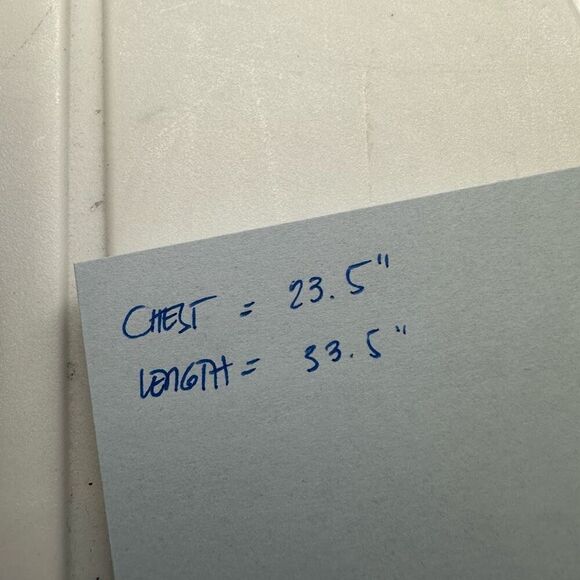 CHEST = 23.5"
LENGTH = 33.5"